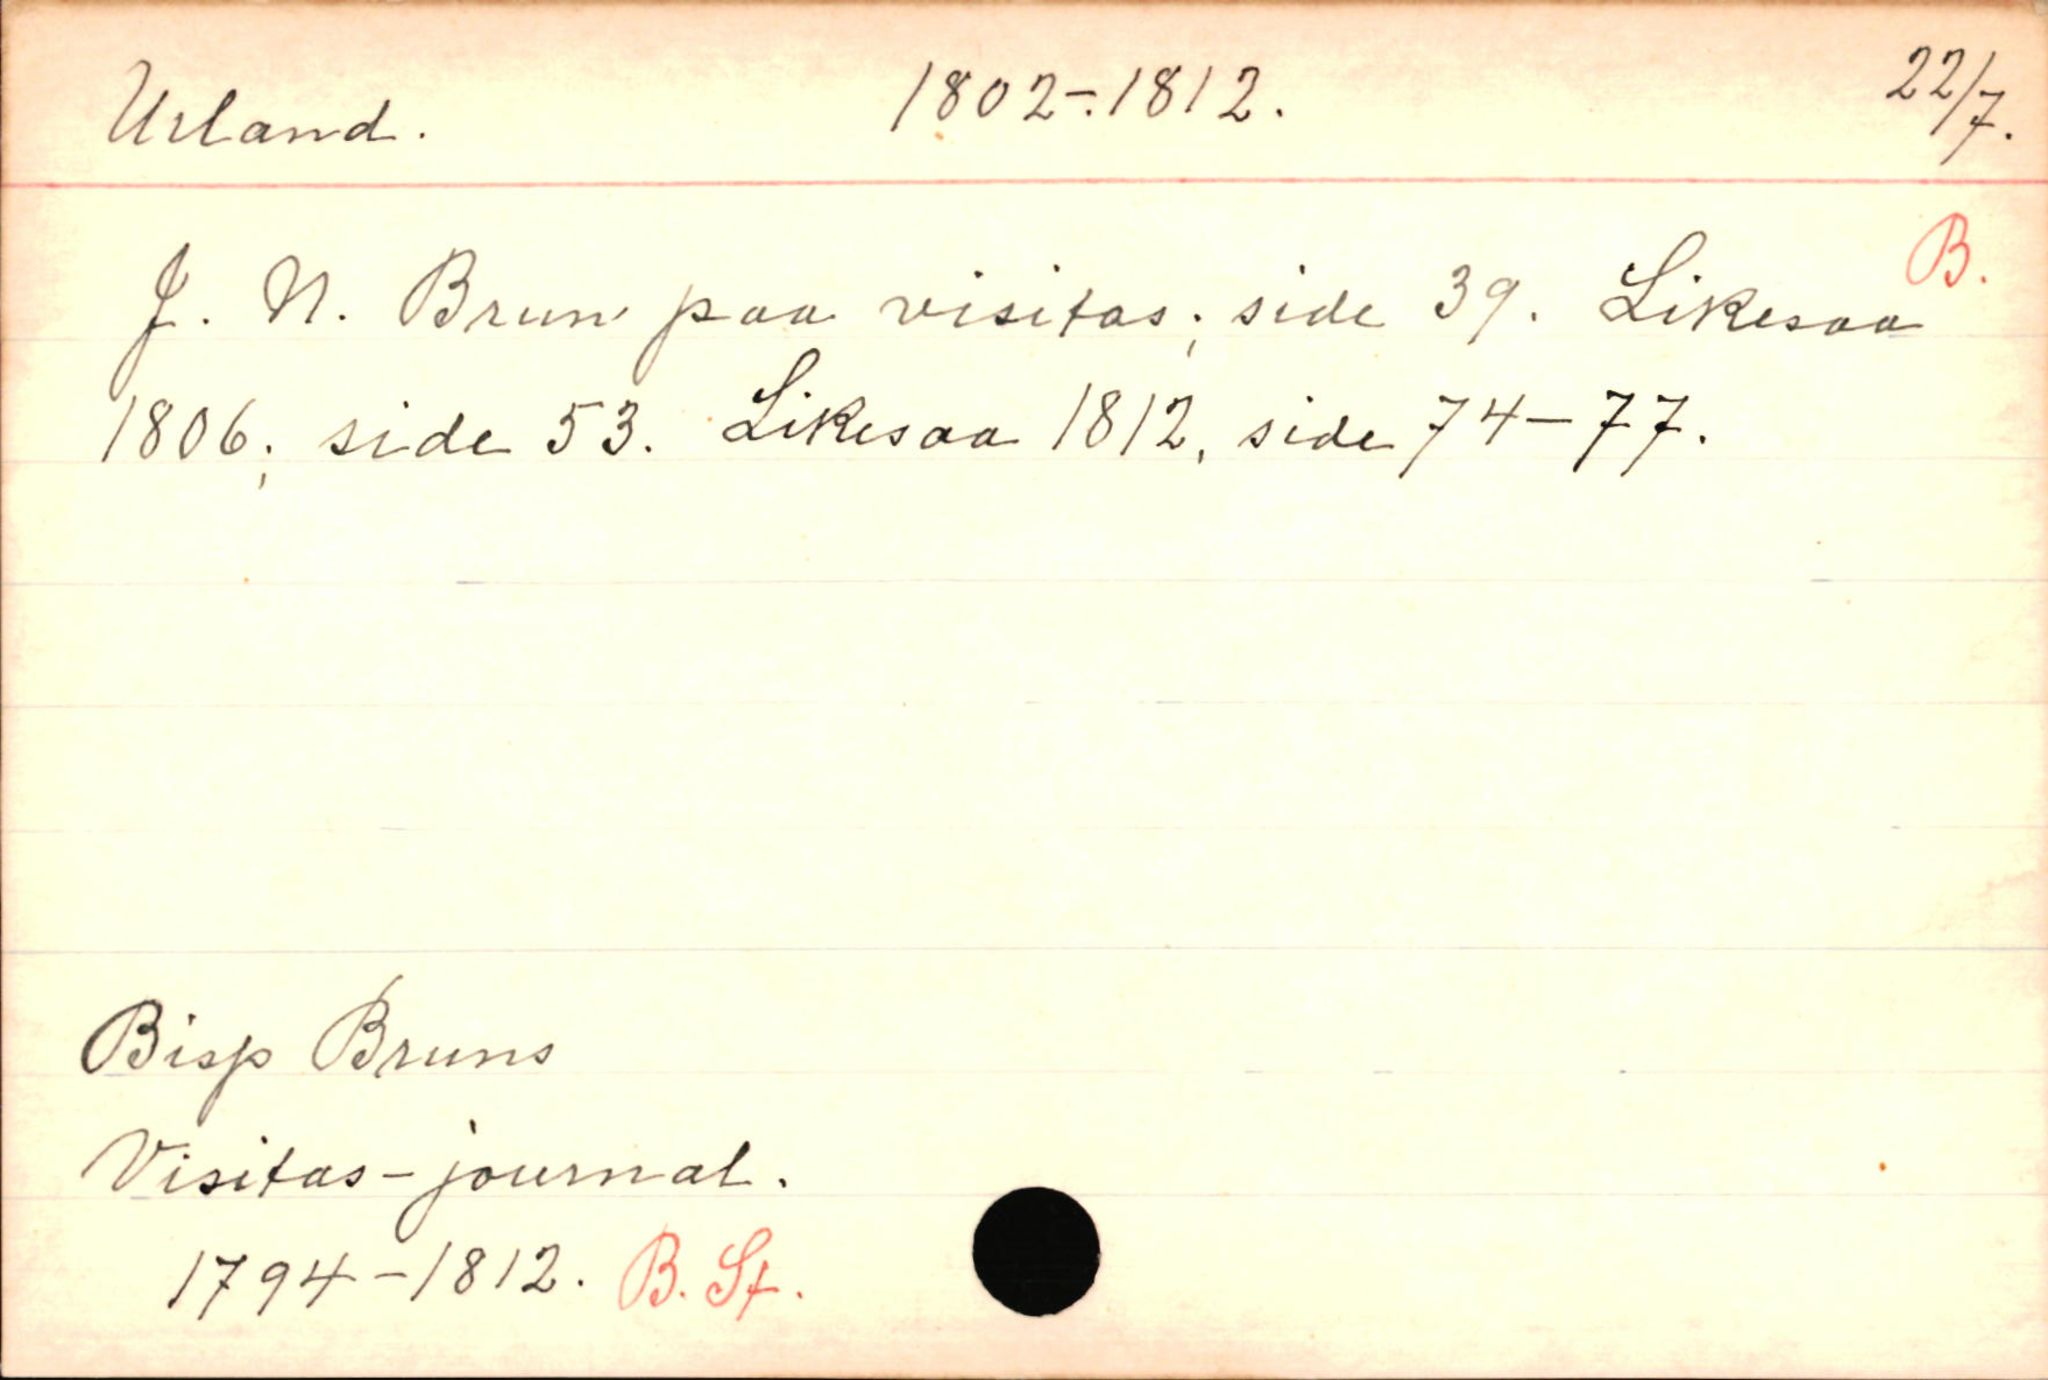 Urland. 1802-1812. 22/7.
B.
J. N. Brun paa visitas; side 39. Likesaa
1806; side 53. Likesaa 1812, side 74-77.
Bisp Bruns
Visitas-journal.
1794-1812. B. St.